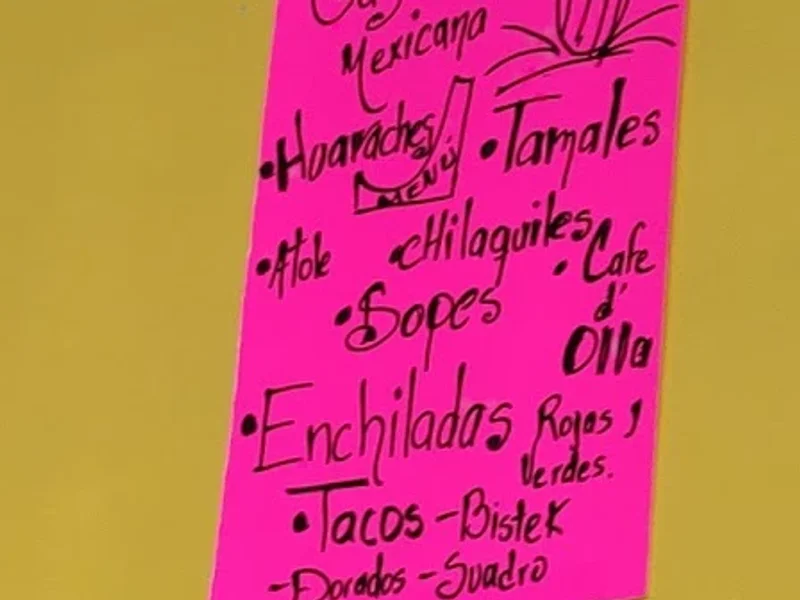 Mexicana
•Huaraches •Tamales
MENÚ
•Atole •cHilaquiles •Cafe
d'
•Sopes Olla
•Enchiladas Rojas y
Verdes.
•Tacos -Bistek
-Dorados -Suadro